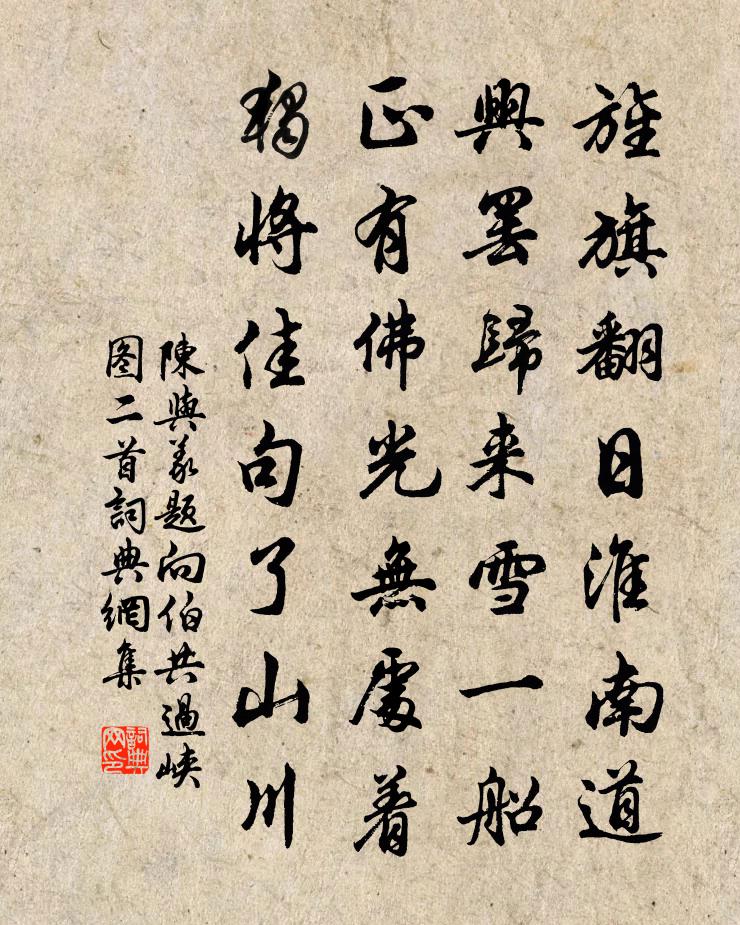 旌旗翻日淮南道
興罷歸来雪一船
正有佛光無處着
獨將佳句了山川
陳與義题向伯共過峡
图二首詞典網集
詞典网印